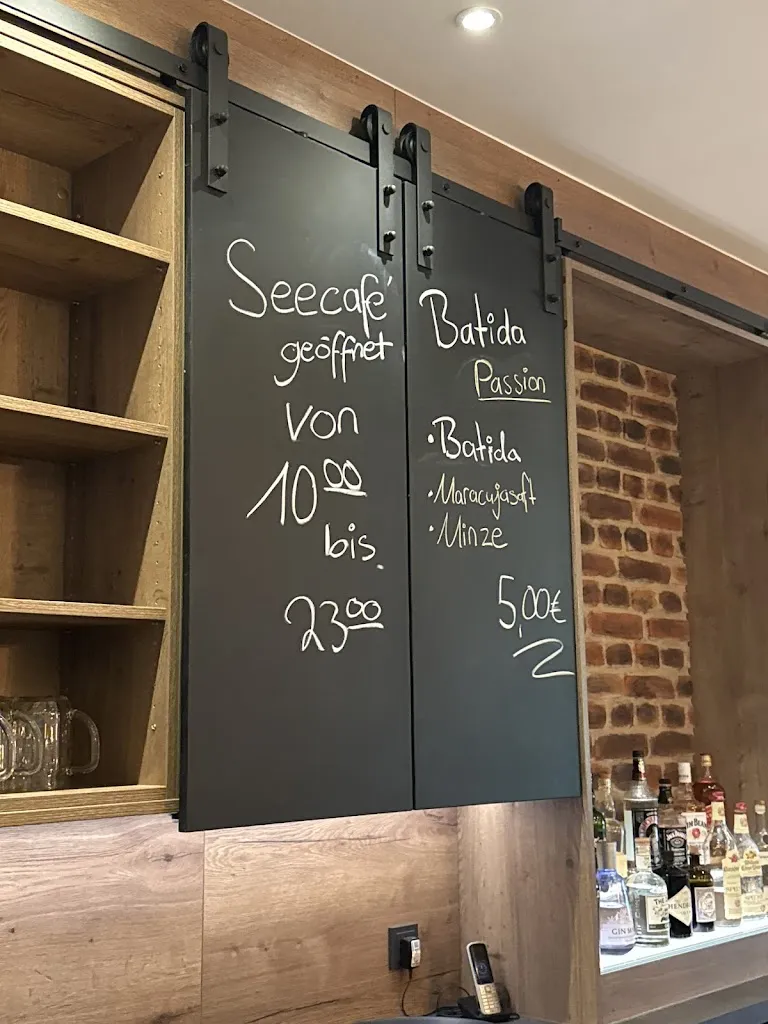 Seecafé
geöffnet
von
10⁰⁰
bis
23⁰⁰
Batida
Passion
• Batida
• Maracujasaft
• Minze
5,00€